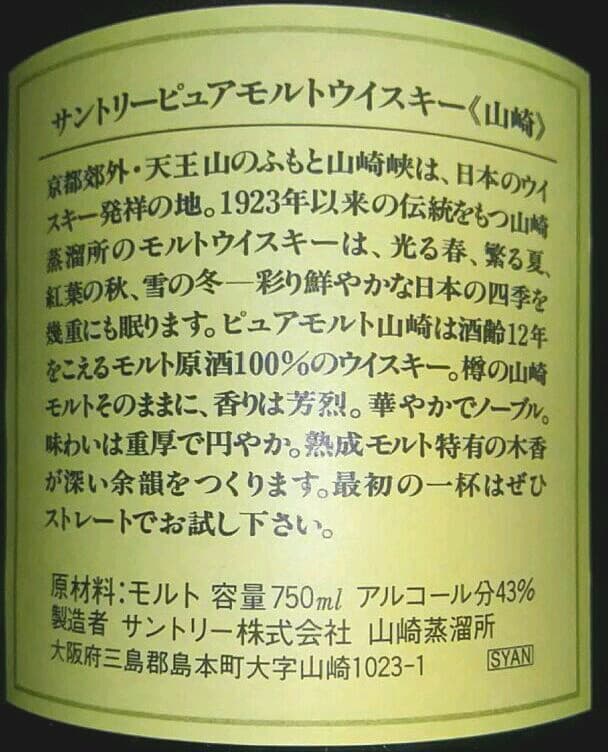 サントリーピュアモルトウイスキー《山崎》
京都郊外・天王山のふもと山崎峡は、日本のウイ
スキー発祥の地。1923年以来の伝統をもつ山崎
蒸溜所のモルトウイスキーは、光る春、繁る夏、
紅葉の秋、雪の冬―彩り鮮やかな日本の四季を
幾重にも眠ります。ピュアモルト山崎は酒齢12年
をこえるモルト原酒100%のウイスキー。樽の山崎
モルトそのままに、香りは芳烈。華やかでノーブル。
味わいは重厚で円やか。熟成モルト特有の木香
が深い余韻をつくります。最初の一杯はぜひ
ストレートでお試し下さい。
原材料:モルト 容量750ml アルコール分43%
製造者 サントリー株式会社 山崎蒸溜所
大阪府三島郡島本町大字山崎1023-1 SYAN